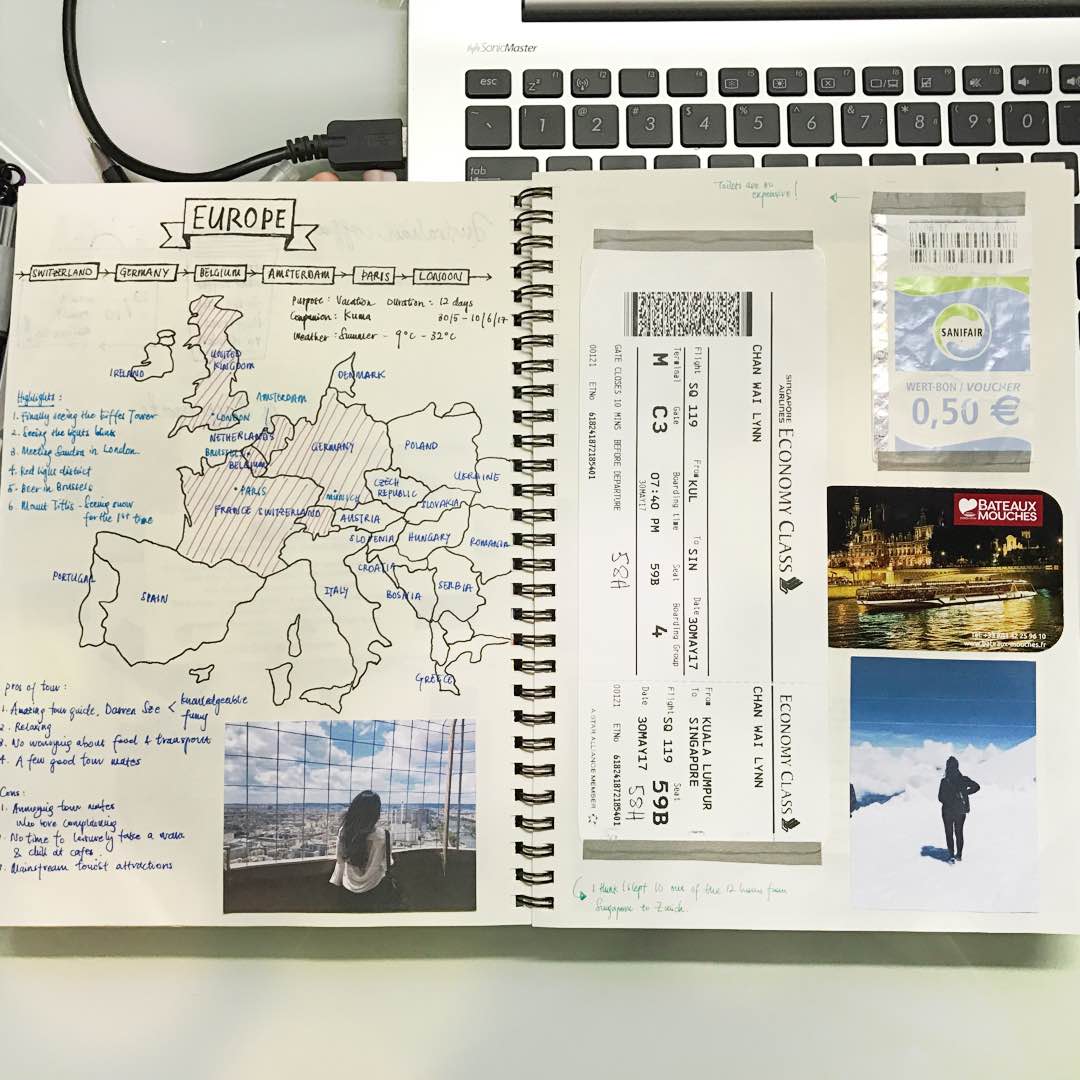 SonicMaster
esc
tab
EUROPE
SWITZERLAND
GERMANY
BELGIUM
AMSTERDAM
PARIS
LONDON
Purpose : Vacation Duration : 12 days
Companion : Kuma 30/5 - 10/6/17
Weather : Summer - 9°C - 32°C
IRELAND
UNITED
KINGDOM
LONDON
DENMARK
AMSTERDAM
NETHERLANDS
BRUSSELS
BELGIUM
GERMANY
POLAND
PARIS
MUNICH
CZECH
REPUBLIC
UKRAINE
SLOVAKIA
FRANCE
SWITZERLAND
AUSTRIA
SLOVENIA
HUNGARY
ROMANIA
CROATIA
BOSNIA
SERBIA
PORTUGAL
SPAIN
ITALY
GREECE
Highlights :
1. Finally seeing the Eiffel Tower
2. Seeing the lights blink
3. Meeting Sandra in London
4. Red light district
5. Beer in Brussels
6. Mount Titlis - Seeing snow
for the 1st time
pros of tour :
1. Amazing tour guide, Darren See < knowledgeable
funny
2. Relaxing
3. No worrying about food & transport
4. A few good tour mates
Cons :
1. Annoying tour mates
who love complaining
2. No time to leisurely take a walk
& chill at cafes
3. Mainstream tourist attractions
Toilets are so
expensive!
SANIFAIR
WERT-BON / VOUCHER
0,50 €
BATEAUX
MOUCHES
www.bateaux-mouches.fr
SINGAPORE
AIRLINES
ECONOMY CLASS
CHAN WAI LYNN
Flight SQ 119 From KUL To SIN Date 30MAY17
Terminal Gate Boarding Time Seat Boarding Group
M C3 07:40 PM 59B 4
30MAY17
GATE CLOSES 10 MINS BEFORE DEPARTURE
58H
00121 ETNo 618241872185401
ECONOMY CLASS
CHAN WAI LYNN
From KUALA LUMPUR
To SINGAPORE
Flight SQ 119 Seat
Date 30MAY17 59B
58H
00121 ETNo 618241872185401
A STAR ALLIANCE MEMBER
I think I slept 10 out of the 12 hours from
Singapore to Zurich.